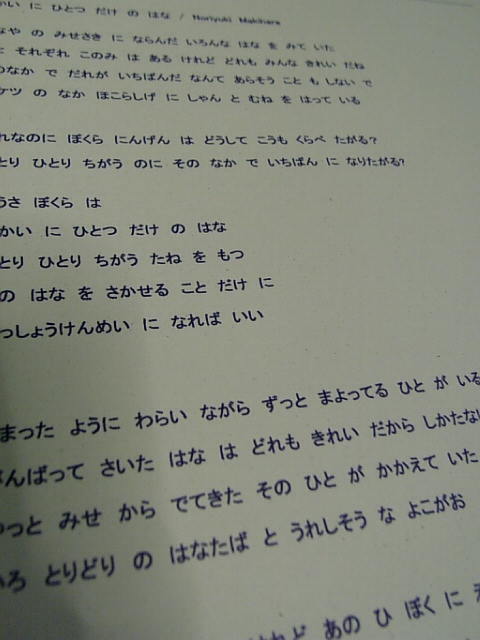 かい に ひとつ だけ の はな / Noriyuki Makihara
なや の みせさき に ならんだ いろんな はな を みて いた
それぞれ このみ は ある けれど どれも みんな きれい だね
のなか で だれが いちばんだ なんて あらそう こと も しない で
ケツ の なか ほこらしげ に しゃん と むね を はって いる
れなのに ぼくら にんげん は どうして こうも くらべ たがる?
とり ひとり ちがう のに その なか で いちばん に なりたがる?
うさ ぼくら は
かい に ひとつ だけ の はな
とり ひとり ちがう たね を もつ
の はな を さかせる こと だけ に
っしょうけんめい に なれば いい
まった ように わらい ながら ずっと まよってる ひと が いる
がんばって さいた はな は どれも きれい だから しかたない
やっと みせ から でてきた その ひと が かかえて いた
いろ とりどり の はなたば と うれしそう な よこがお
けれど あの ひ ぼく に